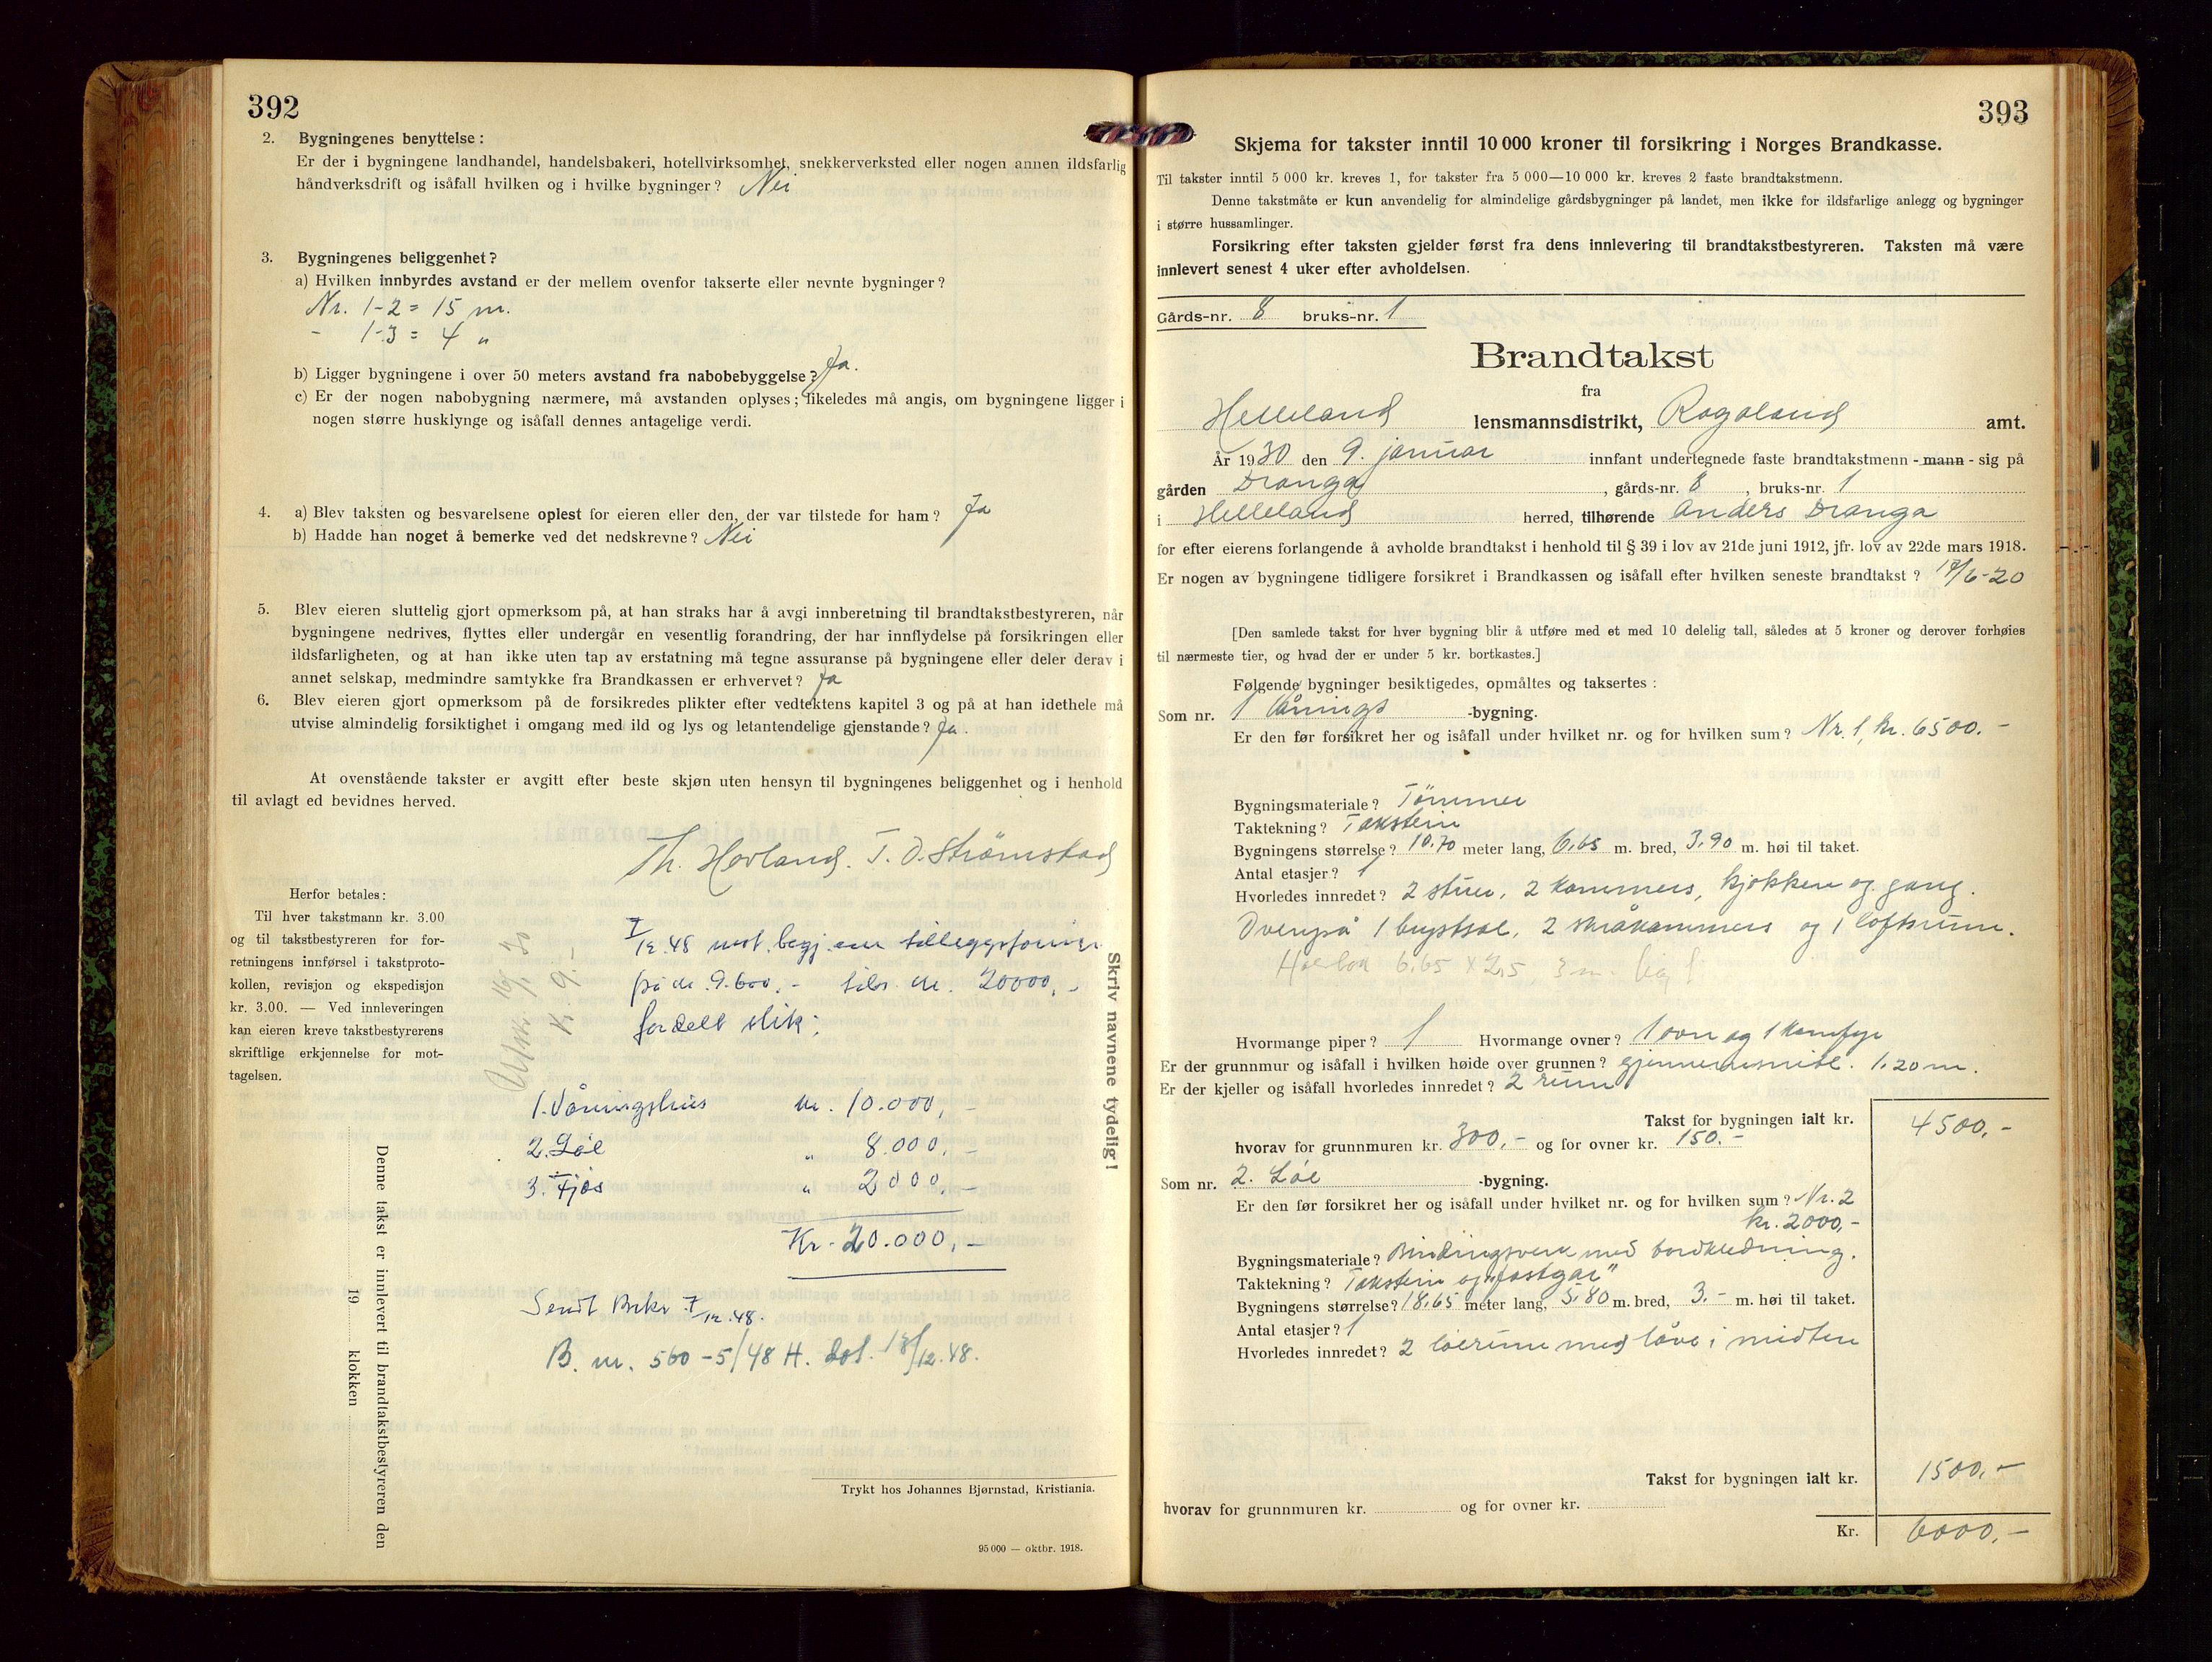 392
2. Bygningenes benyttelse:
Er der i bygningene landhandel, handelsbakeri, hotellvirksomhet, snekkerverksted eller nogen annen ildsfarlig
håndverksdrift og isåfall hvilken og i hvilke bygninger? Nei
3. Bygningenes beliggenhet?
a) Hvilken innbyrdes avstand er der mellem ovenfor takserte eller nevnte bygninger?
Nr. 1-2 = 15 m.
- 1-3 = 4 "
b) Ligger bygningene i over 50 meters avstand fra nabobebyggelse? Ja.
c) Er der nogen nabobygning nærmere, må avstanden oplyses; likeledes må angis, om bygningene ligger i
nogen større husklynge og isåfall dennes antagelige verdi.
4. a) Blev taksten og besvarelsene oplest for eieren eller den, der var tilstede for ham? Ja
b) Hadde han noget å bemerke ved det nedskrevne? Nei
5. Blev eieren sluttelig gjort opmerksom på, at han straks har å avgi innberetning til brandtakstbestyreren, når
bygningene nedrives, flyttes eller undergår en vesentlig forandring, der har innflydelse på forsikringen eller
ildsfarligheten, og at han ikke uten tap av erstatning må tegne assuranse på bygningene eller deler derav i
annet selskap, medmindre samtykke fra Brandkassen er erhvervet? Ja
6. Blev eieren gjort opmerksom på de forsikredes plikter efter vedtektens kapitel 3 og på at han idethele må
utvise almindelig forsiktighet i omgang med ild og lys og letantendelige gjenstande? Ja.
At ovenstående takster er avgitt efter beste skjøn uten hensyn til bygningenes beliggenhet og i henhold
til avlagt ed bevidnes herved.
Th. Hovland. T. O. Strømstad
Herfor betales:
Til hver takstmann kr. 3.00
og til takstbestyreren for for-
retningens innførsel i takstproto-
kollen, revisjon og ekspedisjon
kr. 3.00. — Ved innleveringen
kan eieren kreve takstbestyrerens
skriftlige erkjennelse for mot-
tagelsen.
16/1 30
K. 9.-
7/12.48 mot. begj. om
på kr. 9.600.- kr. 20000,-
fordelt slik:
1. Våningshus kr. 10.000,-
2. Löe " 8.000,-
3. Fjøs " 2000,-
Kr. 20.000,-
Sendt Brkr 7/12.48.
B. nr. 560-5/48 H. dat. 18/12.48.
Skriv navnene tydelig!
Denne takst er innlevert til brandtakstbestyreren den
19 klokken
Trykt hos Johannes Bjørnstad, Kristiania.
95 000 — oktbr. 1918.
393
Skjema for takster inntil 10 000 kroner til forsikring i Norges Brandkasse.
Til takster inntil 5 000 kr. kreves 1, for takster fra 5 000—10 000 kr. kreves 2 faste brandtakstmenn.
Denne takstmåte er kun anvendelig for almindelige gårdsbygninger på landet, men ikke for ildsfarlige anlegg og bygninger
i større hussamlinger.
Forsikring efter taksten gjelder først fra dens innlevering til brandtakstbestyreren. Taksten må være
innlevert senest 4 uker efter avholdelsen.
Gårds-nr. 8 bruks-nr. 1
Brandtakst
fra
Helleland lensmannsdistrikt, Rogaland amt.
År 1930 den 9. januar innfant undertegnede faste brandtakstmenn - mann - sig på
gården Dranga, gårds-nr. 8, bruks-nr. 1
i Helleland herred, tilhørende Anders Dranga
for efter eierens forlangende å avholde brandtakst i henhold til § 39 i lov av 21de juni 1912, jfr. lov av 22de mars 1918.
Er nogen av bygningene tidligere forsikret i Brandkassen og isåfall efter hvilken seneste brandtakst? 17/6-20
[Den samlede takst for hver bygning blir å utføre med et med 10 delelig tall, således at 5 kroner og derover forhøies
til nærmeste tier, og hvad der er under 5 kr. bortkastes.]
Følgende bygninger besiktigedes, opmåltes og taksertes:
Som nr. 1 Vånings -bygning.
Er den før forsikret her og isåfall under hvilket nr. og for hvilken sum? Nr. 1, kr. 6500.-
Bygningsmateriale? Tømmer
Taktekning? Takstein
Bygningens størrelse? 10,70 meter lang, 6,65 m. bred, 3,90 m. høi til taket.
Antal etasjer? 1
Hvorledes innredet? 2 stuer, 2 kammers, kjøkken og gang.
Ovenpå 1 brystsal, 2 skråkammers og 1 loftsrum.
6,65 x 2,5, 3 m.
Hvormange piper? 1 Hvormange ovner? 1 ovn og 1 komfyr
Er der grunnmur og isåfall i hvilken høide over grunnen? gjennemsnitl. 1,20 m.
Er der kjeller og isåfall hvorledes innredet? 2 rum
Takst for bygningen ialt kr. 4500,-
hvorav for grunnmuren kr. 300,- og for ovner kr. 150.-
Som nr. 2. Löe -bygning.
Er den før forsikret her og isåfall under hvilket nr. og for hvilken sum? Nr. 2
kr. 2000,-
Bygningsmateriale? Bindingsverk med bordkledning.
Taktekning? Takstein og
Bygningens størrelse? 18,65 meter lang, 5,80 m. bred, 3.- m. høi til taket.
Antal etasjer? 1
Hvorledes innredet? 2 löerum med låve i midten
Takst for bygningen ialt kr. 1500,-
hvorav for grunnmuren kr. og for ovner kr.
Kr. 6000,-